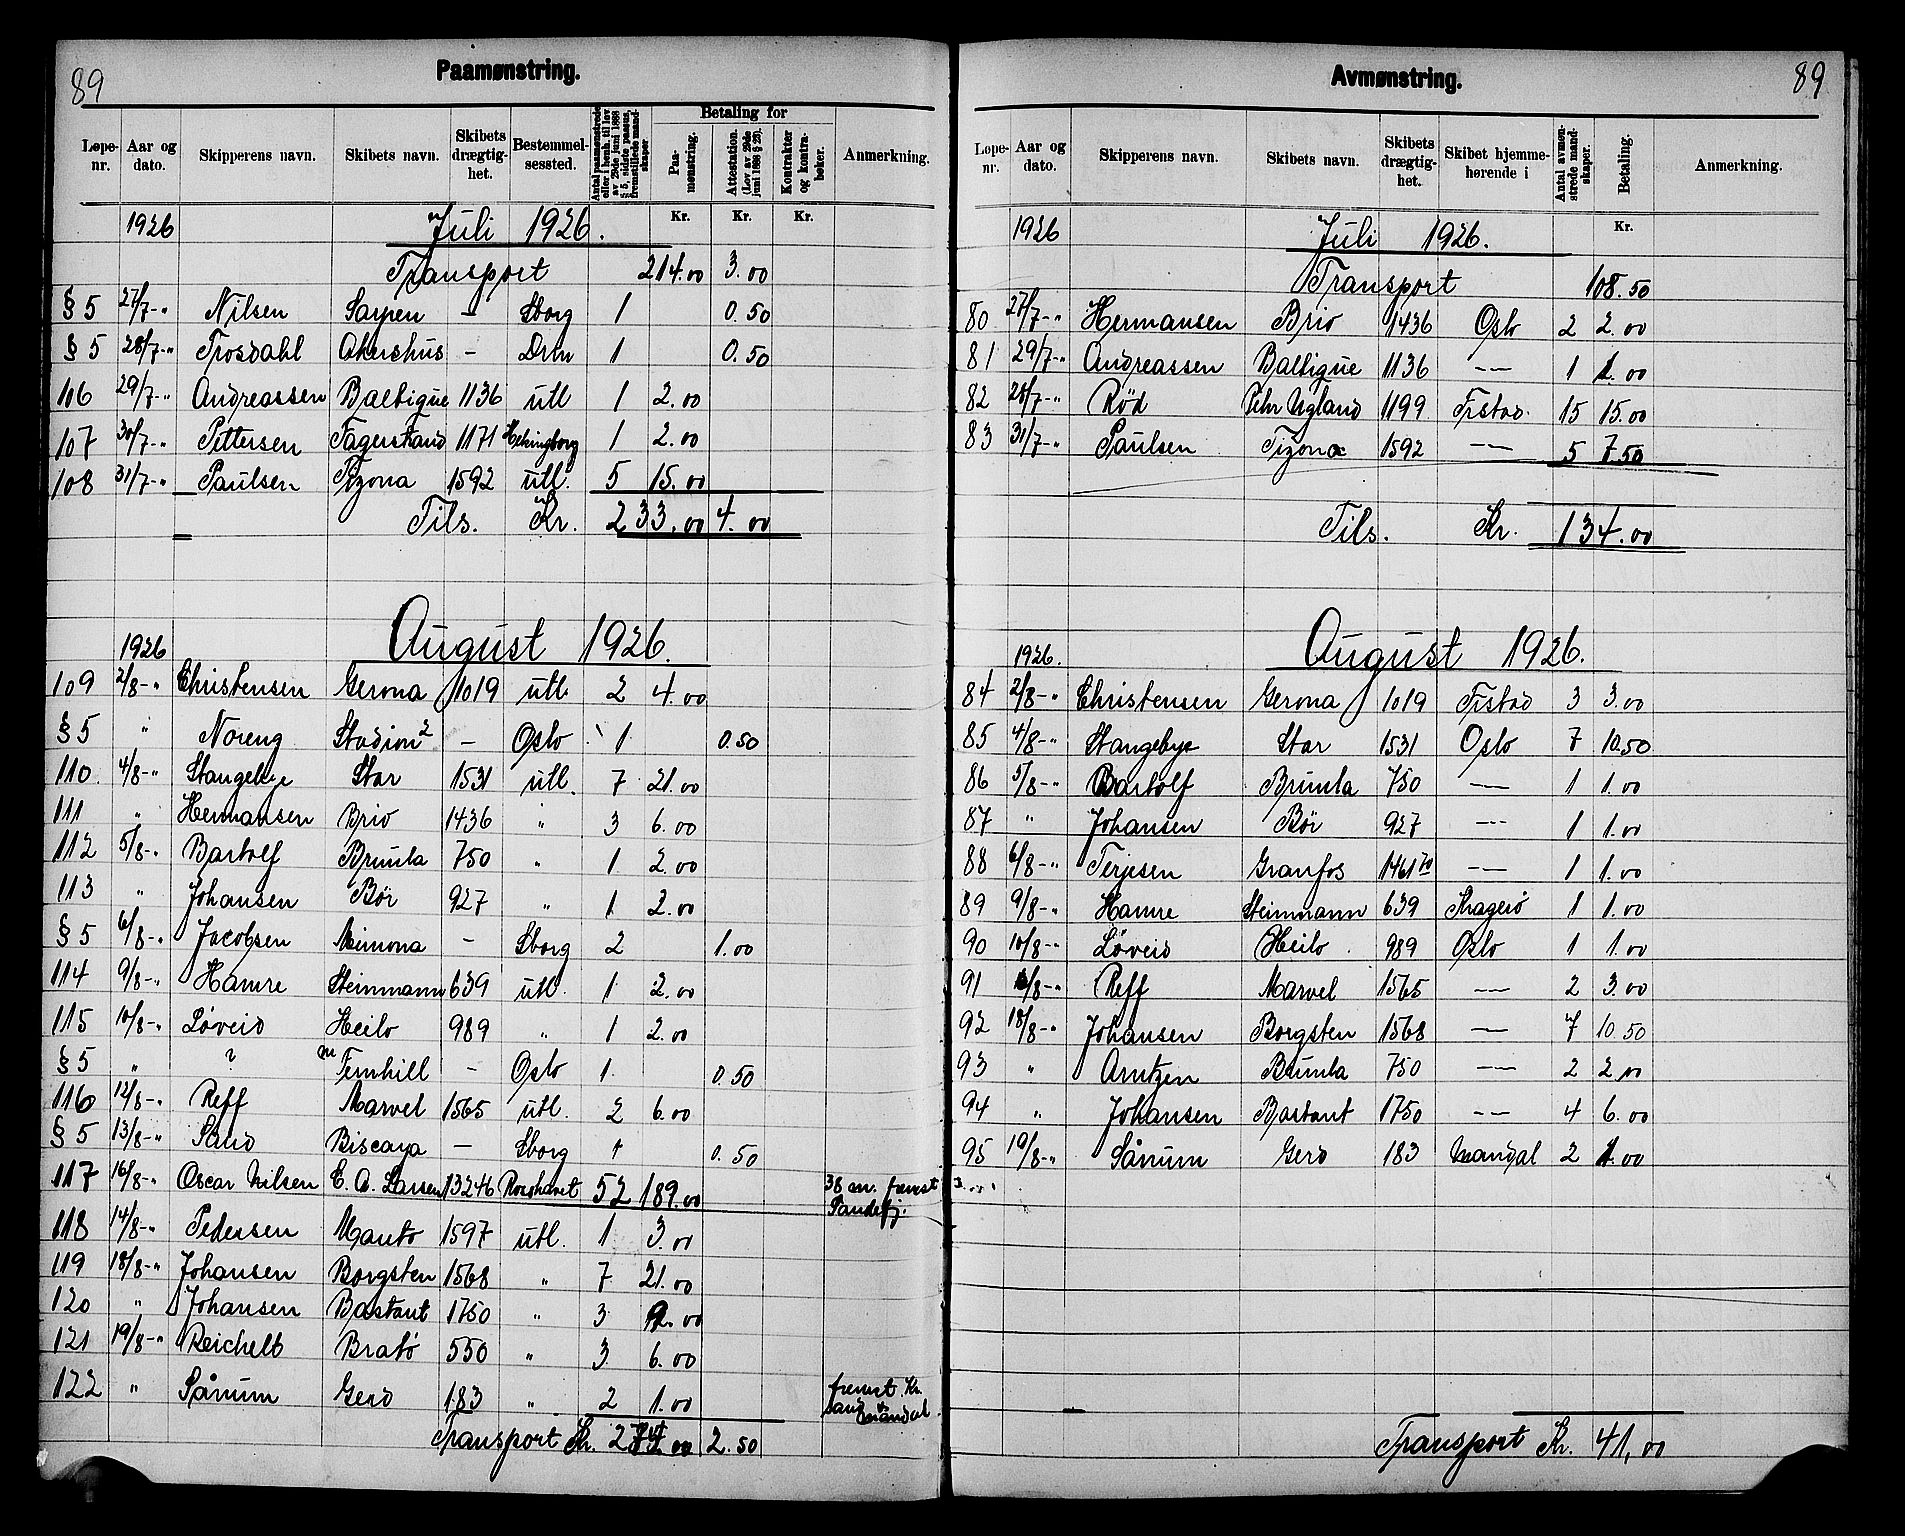 89
Paamønstring.
Løpe-nr. | Aar og dato. | Skipperens navn. | Skibets navn. | Skibets drægtig-het. | Bestemmel-sessted. | Antal paamønstrede eller i henh. til lov av 29de juni 1888 § 5, sidste passus, fremstillede mand-skaper | Betaling for | Paa-mønstring. | Attestation. (Lov av 29de juni 1888 § 25). | Kontrakter og kontra-bøker. | Anmerkning.
Kr. Kr. Kr.
1926 Juli 1926.
Transport 214.00 3.00
§ 5 27/7-" Nilsen Sarpen - Sborg 1 0.50
§ 5 28/7-" Trosdahl Akershus - Drm 1 0.50
106 29/7-" Andreassen Baltique 1136 utl 1 2.00
107 30/7-" Pettersen Fagerstrand 1171 Helsingborg 1 2.00
108 31/7-" Paulsen Tizona 1592 utl. 5 15.00
Tils. Kr. 233.00 4.00
1926 August 1926.
109 2/8-" Christensen Gerona 1019 utl. 2 4.00
§ 5 " Noreng Stadion 2 - Oslo 1 0.50
110 4/8-" Stangebye Star 1531 utl. 7 21.00
111 " Hermansen Brio 1436 " 3 6.00
112 5/8-" Bartolf Brumla 750 " 1 2.00
113 " Johansen Bør 927 " 1 2.00
§ 5 6/8-" Jacobsen Mimona - Sborg 2 1.00
114 9/8-" Hamre Steinmann 639 utl. 1 2.00
115 10/8-" Løveid Heilo 989 " 1 2.00
§ 5 " ? m Fernhill - Oslo 1 0.50
116 12/8-" Reff Marvel 1565 utl. 2 6.00
§ 5 13/8-" Sand Biscaya - Sborg 1 0.50
117 16/8-" Oscar Nilsen C. A. Larsen 13246 Rosshavet 52 189.00 38 m. fremst Sandefj.
118 14/8-" Pedersen Manto 1597 utl. 1 3.00
119 18/8-" Johansen Borgsten 1568 " 7 21.00
120 " Johansen Bastant 1750 " 3 9.00
121 19/8-" Reichelt Bratø 550 " 3 6.00
122 " Sånum Gerd 183 " 2 1.00 fremst. Kr. sand Mandal.
Transport Kr. 274.00 2.50
89
Avmønstring.
Løpe-nr. | Aar og dato. | Skipperens navn. | Skibets navn. | Skibets drægtig-het. | Skibet hjemme-hørende i | Antal avmøn-strede mand-skaper. | Betaling. | Anmerkning.
Kr.
1926 Juli 1926.
Transport 108.50
80 27/7-" Hermansen Brio 1436 Oslo 2 2.00
81 29/7-" Andreassen Baltique 1136 -"- 1 1.00
82 28/7-" Rød Pehr Ugland 1199 Frstad. 15 15.00
83 31/7-" Paulsen Tizona 1592 -"- 5 7.50
Tils. Kr. 134.00
1926. August 1926.
84 2/8-" Christensen Gerona 1019 Frstad 3 3.00
85 4/8-" Stangebye Star 1531 Oslo 7 10.50
86 5/8-" Bartolf Brumla 750 -"- 1 1.00
87 " Johansen Bør 927 -"- 1 1.00
88 6/8-" Terjesen Granfos 1461 70 -"- 1 1.00
89 9/8-" Hamre Steinmann 639 Kragerø 1 1.00
90 10/8-" Løveid Heilo 989 Oslo 1 1.00
91 /8-" Reff Marvel 1565 -"- 2 3.00
92 18/8-" Johansen Borgsten 1568 -"- 7 10.50
93 " Arntzen Brumla 750 -"- 2 2.00
94 " Johansen Bastant 1750 -"- 4 6.00
95 19/8-" Sånum Gerd 183 Mandal 2 1.00
3.00
Transport Kr. 41,00